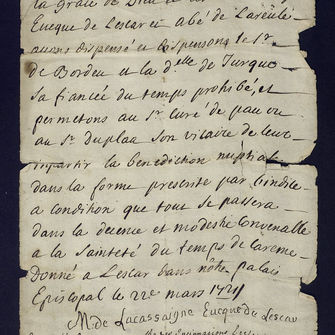 la grace de Dieu et
Eveque de Lescar et abé de Lareule
avons dispensé et dispensons le Sr
de Bordeu et la dlle de Turque
Sa fiancée du temps prohibé, et
permetons au Sr Curé de pau ou
au Sr duplaa Son vicaire de leur
impartir la benediction nuptial
dans la forme prescrite par
a condition que tout se passera
dans la decence et modestie convenable
a la Sainteté du temps de Careme
Donné a Lescar dans nôtre palais
Episcopal le 22e mars 1721
M. de Lacassaigne Eveque de Lescar